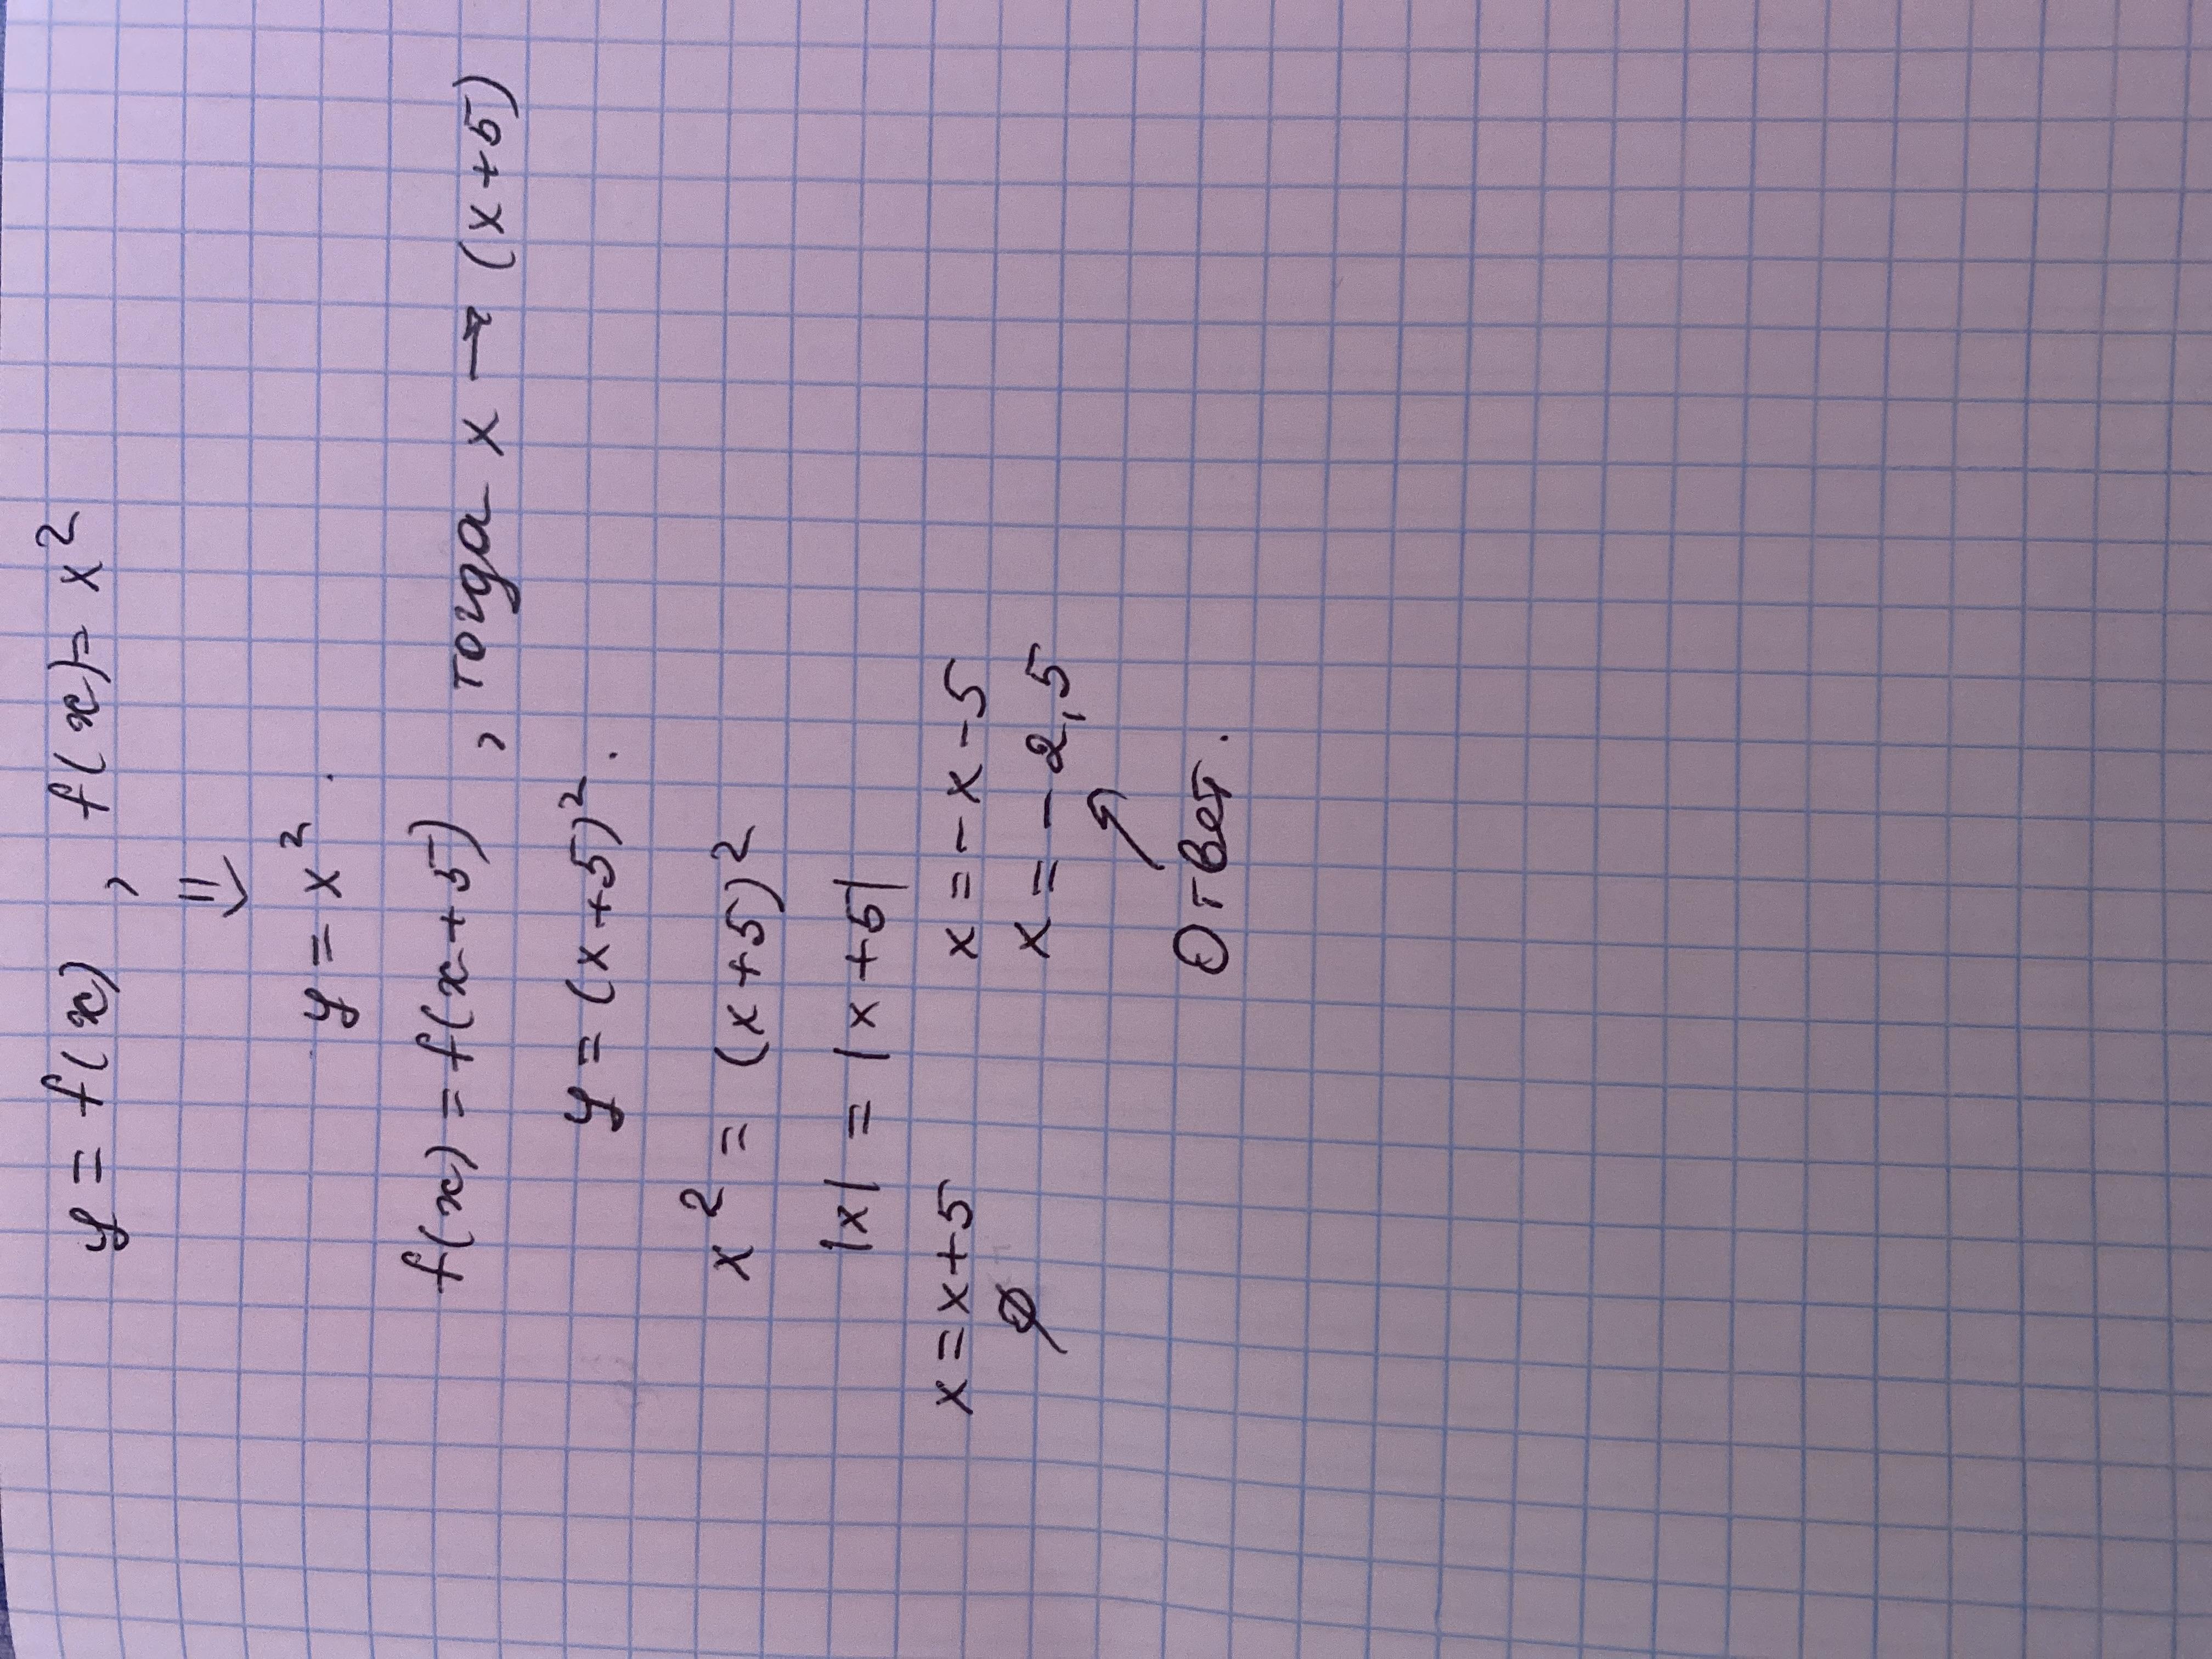 y = f(x) , f(x) = x²
⇓
y = x².
f(x) = f(x+5) , тогда x → (x+5)
y = (x+5)².
x² = (x+5)²
|x| = |x+5|
x = x+5 x = -x-5
∅ x = -2,5
↗
Ответ.